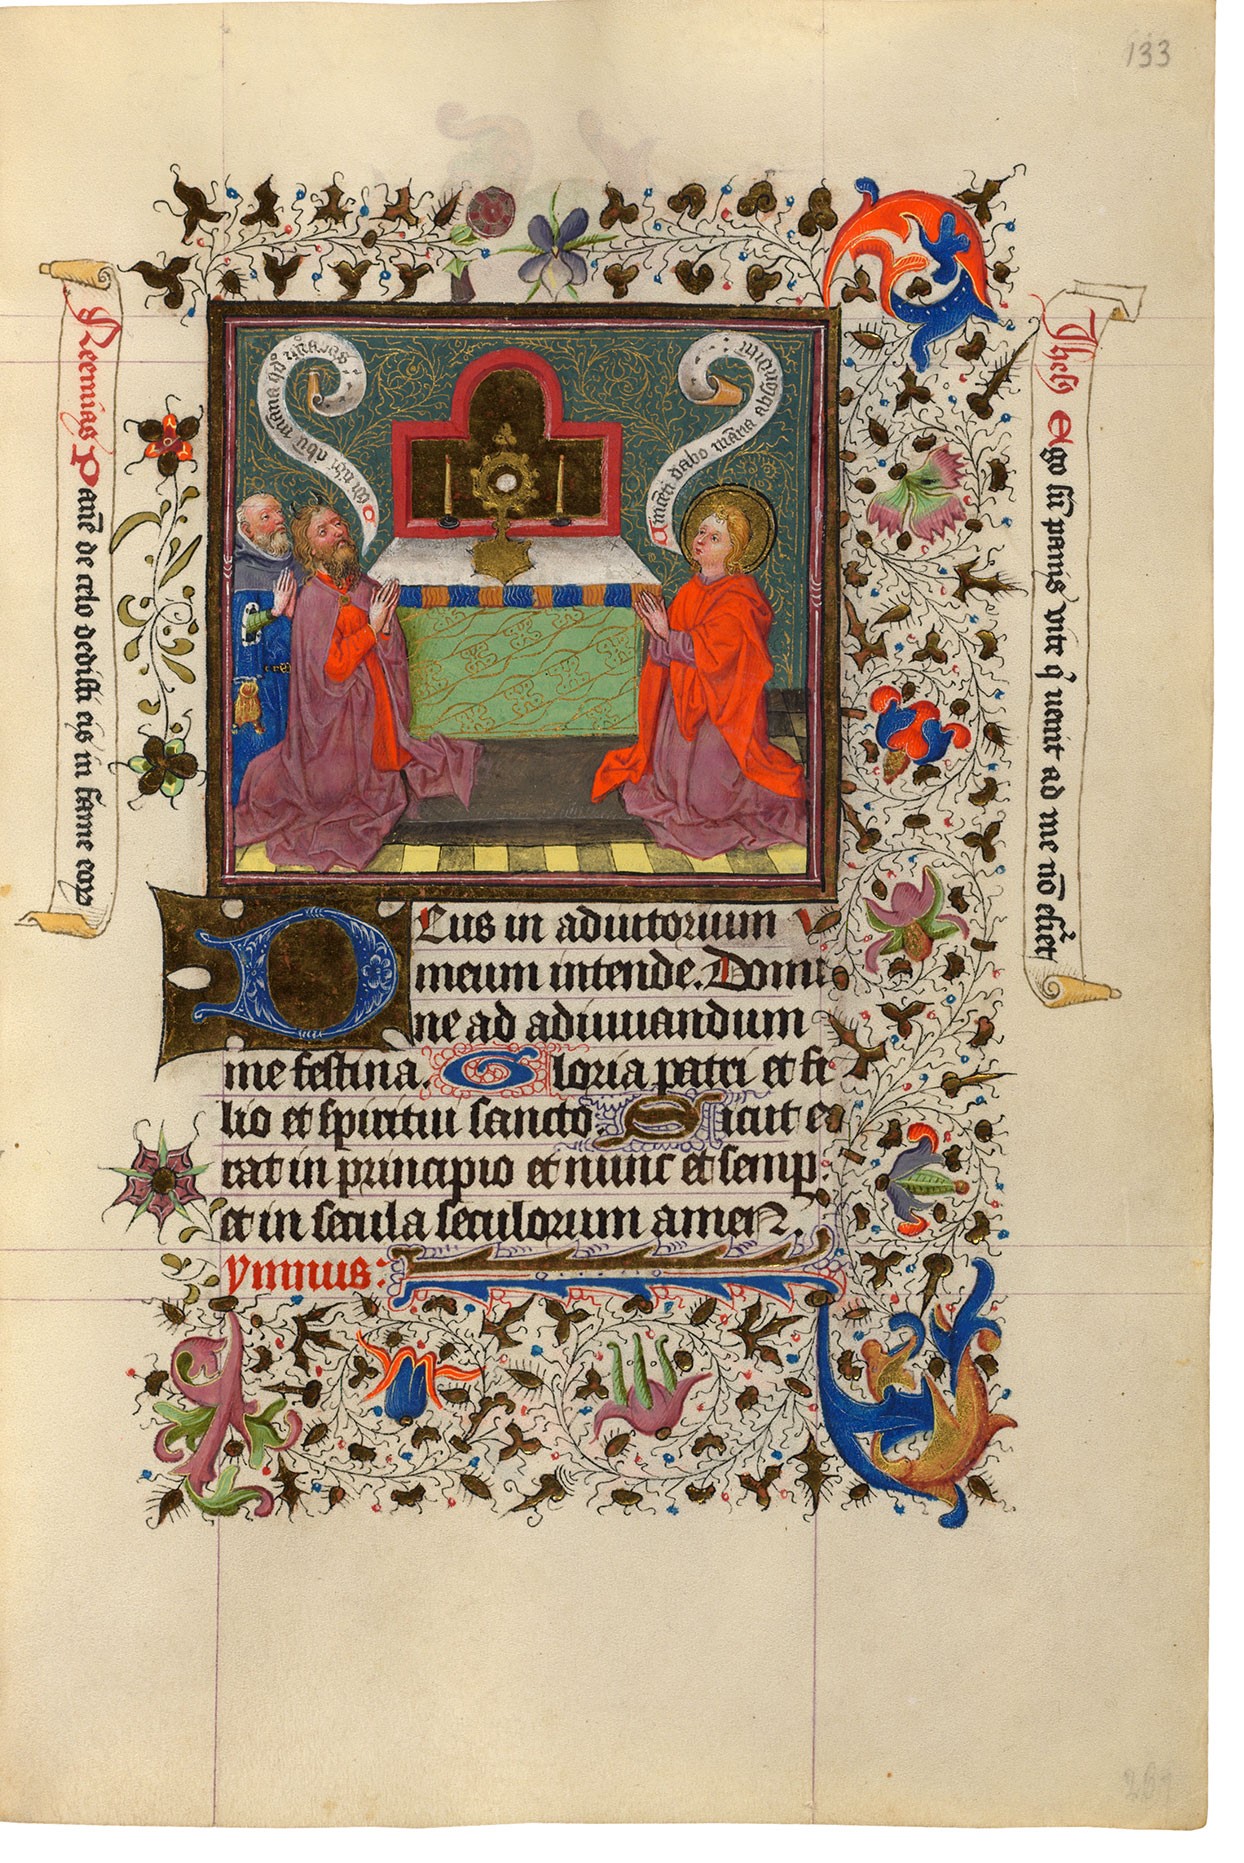 133
Neemias Pane de celo dedisti eis in fame eorum
Ihesus Ego sum panis vite qui venit ad me non esuriet
vincenti dabo manna absconditum
Deus in adiutorium
meum intende. Domi
ne ad adiuuandum
me festina. Gloria patri et fi
lio et spiritui sancto. Sicut e
rat in principio et nunc et semp.
et in secula seculorum amen.
ymnus: